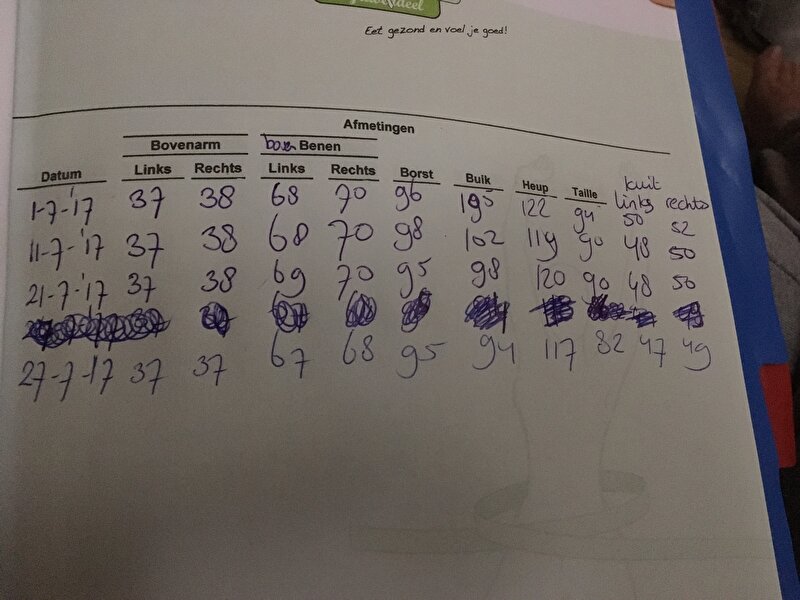 deel
Eet gezond en voel je goed!
Afmetingen
Bovenarm boven Benen
Datum Links Rechts Links Rechts Borst Buik Heup Taille kuit links rechts
1-7-'17 37 38 68 70 96 122 94 50 52
11-7-'17 37 38 68 70 98 102 119 90 48 50
21-7-'17 37 38 69 70 95 98 120 90 48 50
27-7-'17 37 37 67 68 95 94 117 82 47 49